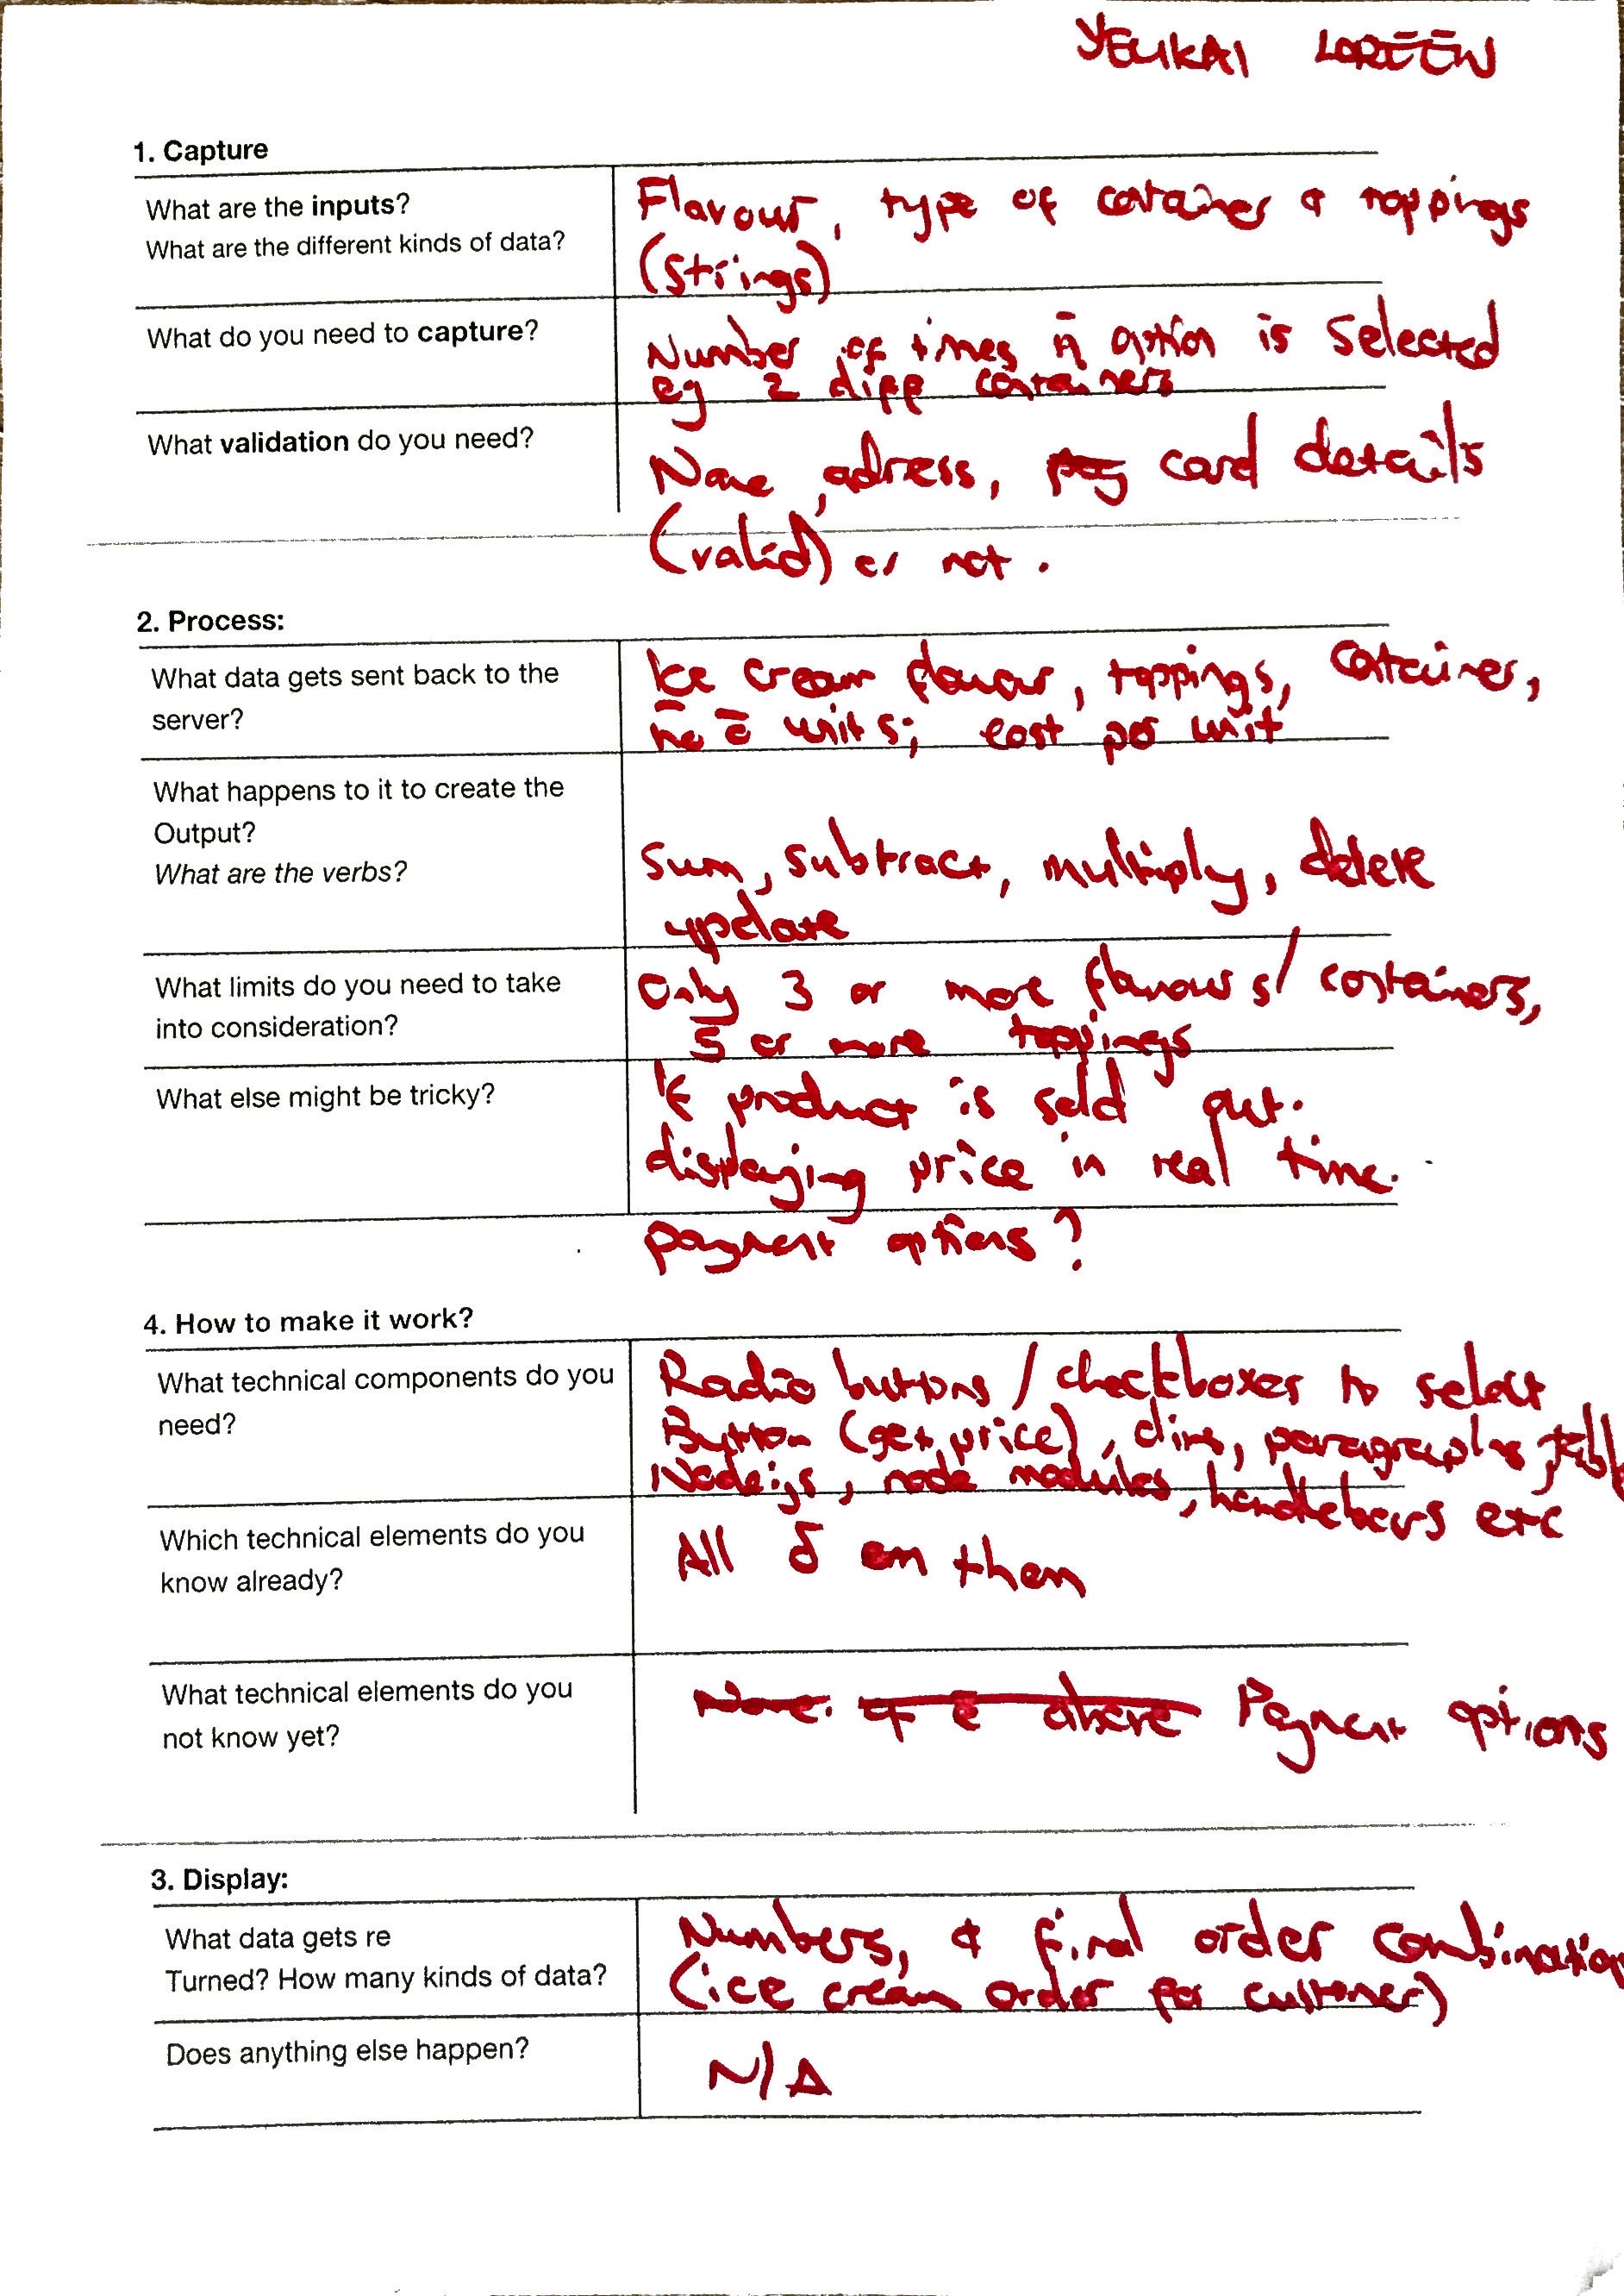 YEUKAI LOREEN
1. Capture
What are the inputs?
What are the different kinds of data?
Flavour, type of container & toppings
(strings)
What do you need to capture?
Number of times an option is selected
eg 2 diff containers
What validation do you need?
Name, adress, card details
(valid) or not.
2. Process:
What data gets sent back to the
server?
Ice cream flavour, toppings, container,
units; cost per unit
What happens to it to create the
Output?
What are the verbs?
Sum, subtract, multiply, delete
update
What limits do you need to take
into consideration?
Only 3 or more flavours/containers,
5 or more toppings
What else might be tricky?
If product is sold out.
displaying price in real time.
payment options?
4. How to make it work?
What technical components do you
need?
Radio buttons / checkboxes to select
Button (get price), divs, paragraphs,
Node.js, node modules, handlebars etc
Which technical elements do you
know already?
All them
What technical elements do you
not know yet?
None. above Payment options
3. Display:
What data gets re
Turned? How many kinds of data?
Numbers, & final order combination
(ice cream order for customer)
Does anything else happen?
N/A